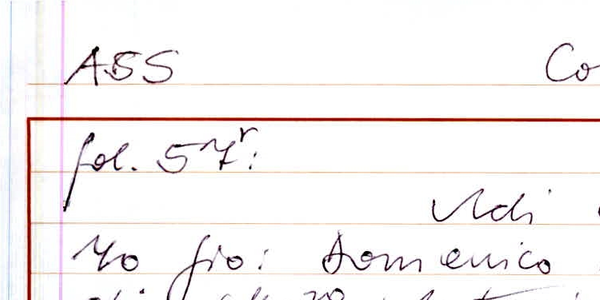 ASS Co
fol. 57r:
Adi
Yo Gio: Domenico